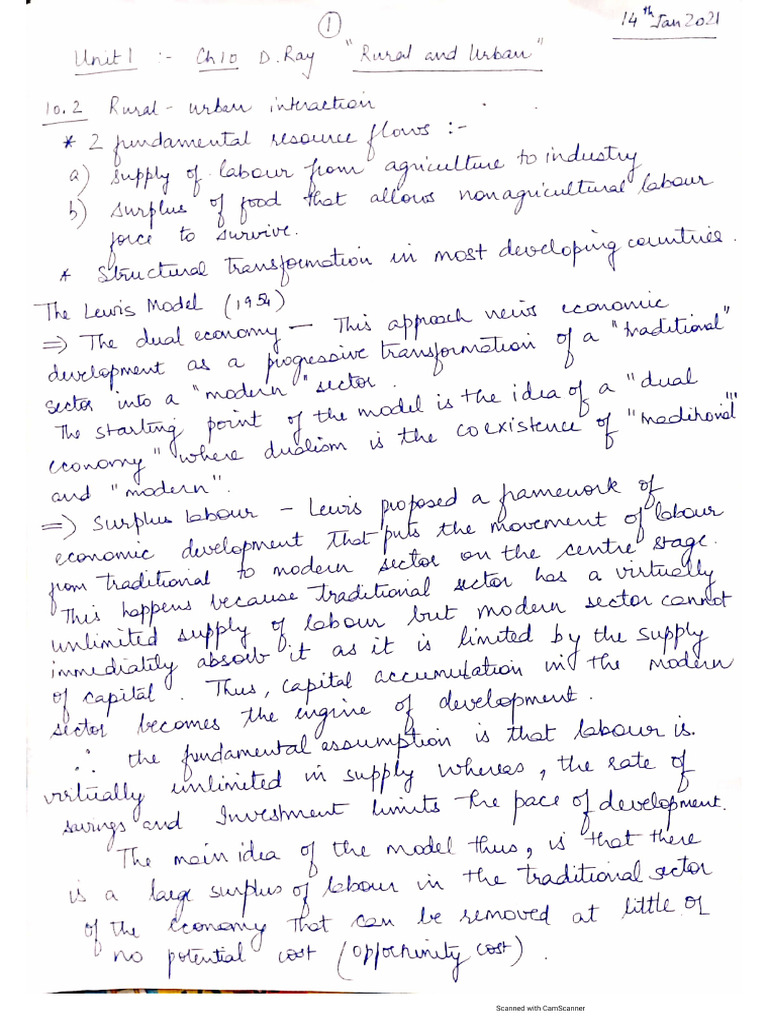 1
14th Jan 2021
Unit 1 :- Ch 10 D. Ray "Rural and Urban"
10.2 Rural - urban interaction
* 2 fundamental resource flows :-
a) supply of labour from agriculture to industry
b) surplus of food that allows nonagricultural labour
force to survive.
* Structural transformation in most developing countries.
The Lewis Model (1954)
⇒ The dual economy - This approach views economic
development as a progressive transformation of a "traditional"
sector into a "modern" sector.
The starting point of the model is the idea of a "dual
economy" where dualism is the coexistence of "traditional"
and "modern".
⇒ Surplus labour - Lewis proposed a framework of
economic development that puts the movement of labour
from traditional to modern sector on the centre stage.
This happens because traditional sector has a virtually
unlimited supply of labour but modern sector cannot
immediately absorb it as it is limited by the supply
of capital. Thus, capital accumulation in the modern
sector becomes the engine of development.
∴ the fundamental assumption is that labour is.
virtually unlimited in supply whereas, the rate of
savings and Investment limits the pace of development.
The main idea of the model thus, is that there
is a large surplus of labour in the traditional sector
of the economy that can be removed at little or
no potential cost (opportunity cost).
Scanned with CamScanner